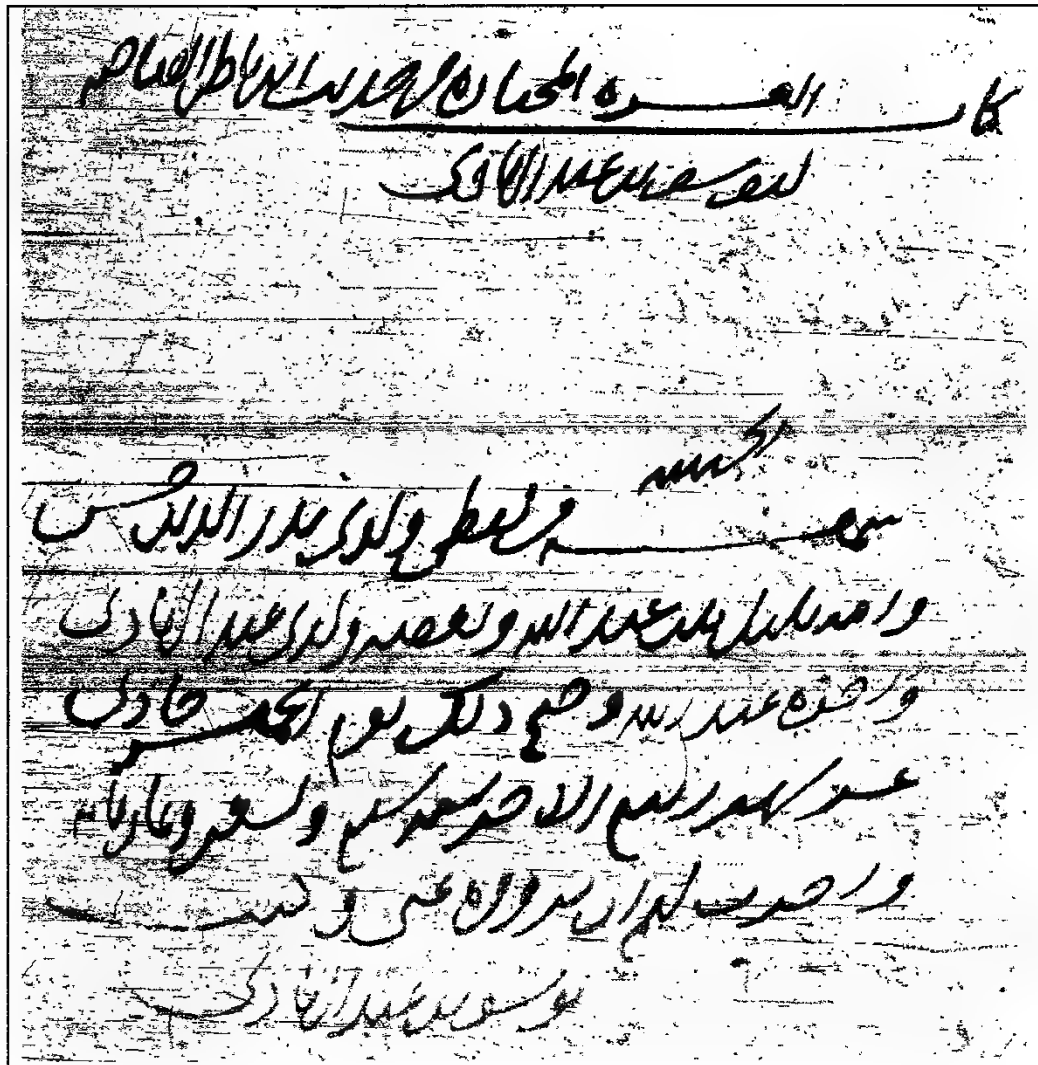 كتاب العشرة المختارة من حديث ابن ناظر الصاحبة
ليوسف بن عبد الهادي
الحمد لله
سمعه من لفظي ولدي بدر الدين حسن
وأمه بلبل بنت عبد الله وبعضه ولدي عبد الهادي
وأخوه عبد الله وصح ذلك يوم حادي
عشر شهر ربيع الآخر سنة سبع وتسعين وثمانمائة
وأجزت لهم أن يرووه عني وكتب
يوسف بن عبد الهادي